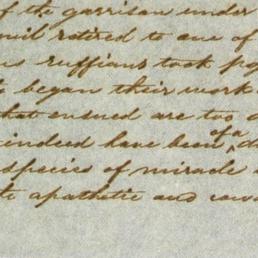 of the garrison under
retired to one of
ruffians took
began their work
that ensued are too
indeed have been of a
species of miracle
apathetic and